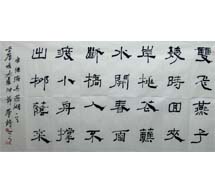 雙飛燕子
幾時回夾
岸桃花蘸
水開春雨
斷橋人不
渡小舟撐
出柳蔭來